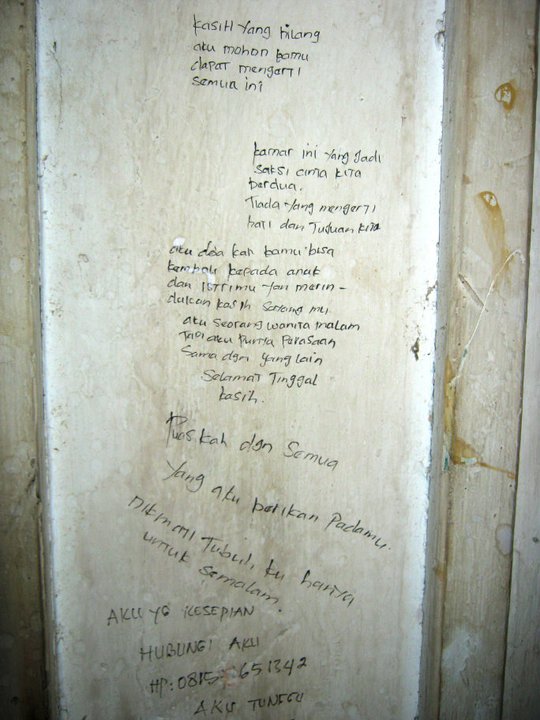 kasih yang hilang
aku mohon kamu
dapat mengerti
semua ini
kamar ini yang jadi
saksi cinta kita
berdua.
Tiada yang mengerti
hati dan Tujuan kita
aku doa kan kamu bisa
kembali kepada anak
dan istrimu yan merin-
dukan kasih sayang mu
aku seorang wanita malam
Tapi aku punya perasaan
sama dgn yang lain
Selamat Tinggal
kasih.
Puaskah dgn semua
yang aku berikan Padamu.
Nikmati Tubuh ku hanya
untuk semalam.
AKU YG KESEPIAN
HUBUNGI AKU
HP: 0815 651342
AKU TUNGGU